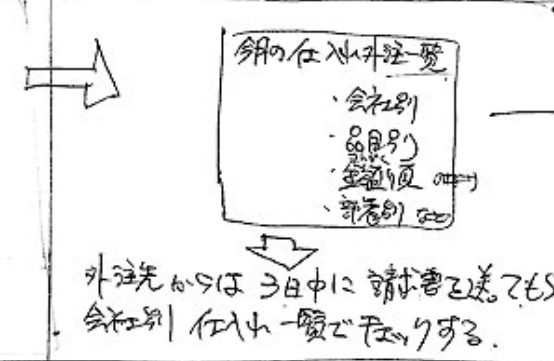 今月の仕入れ外注一覧
・会社別
・品目別
・金額順
・部署別 など
外注先からは 3日中に 請求書を送ってもら
会社別 仕入れ一覧でチェックする.